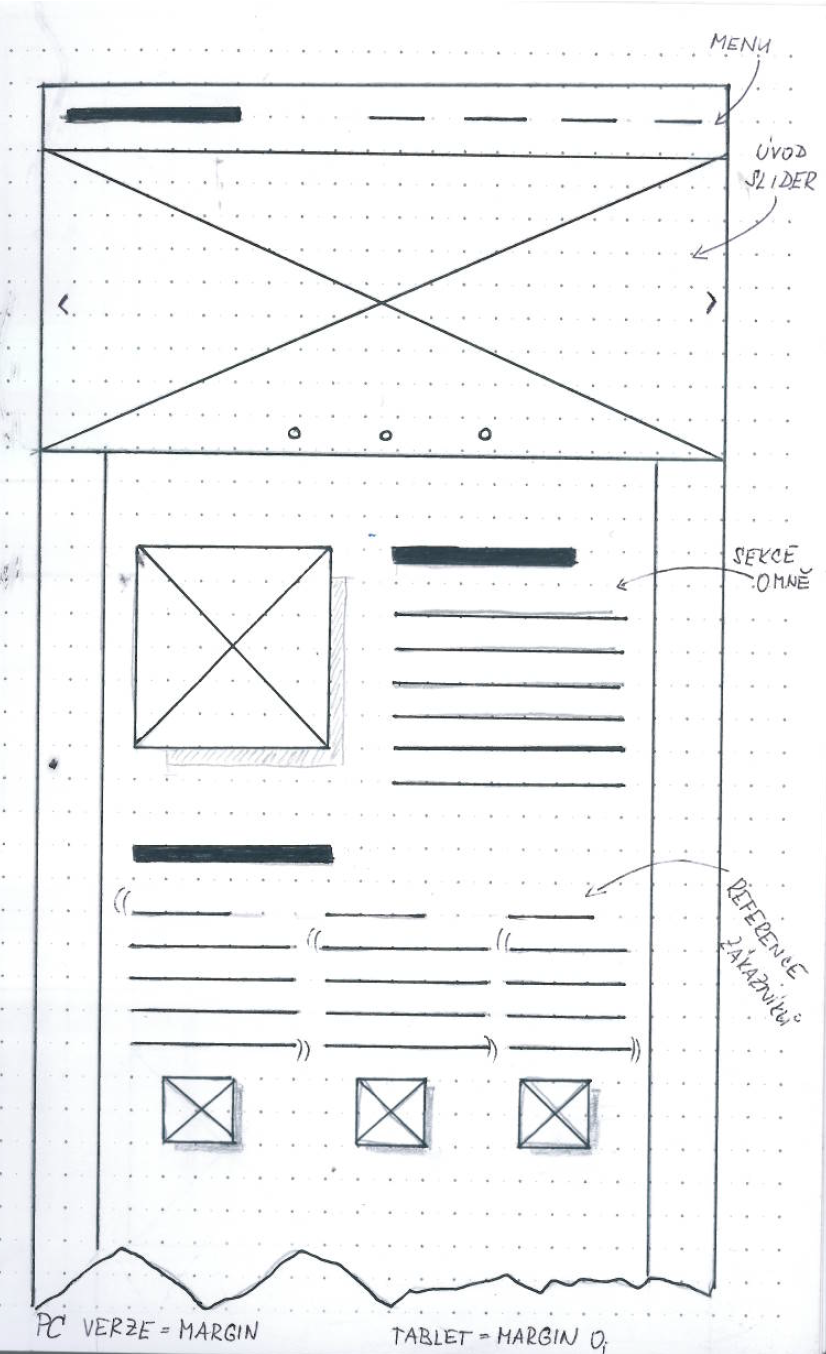 MENU
ÚVOD
SLIDER
SEKCE
OMNĚ
REFERENCE
ZÁKAZNÍKŮ
PC VERZE = MARGIN
TABLET = MARGIN 0;